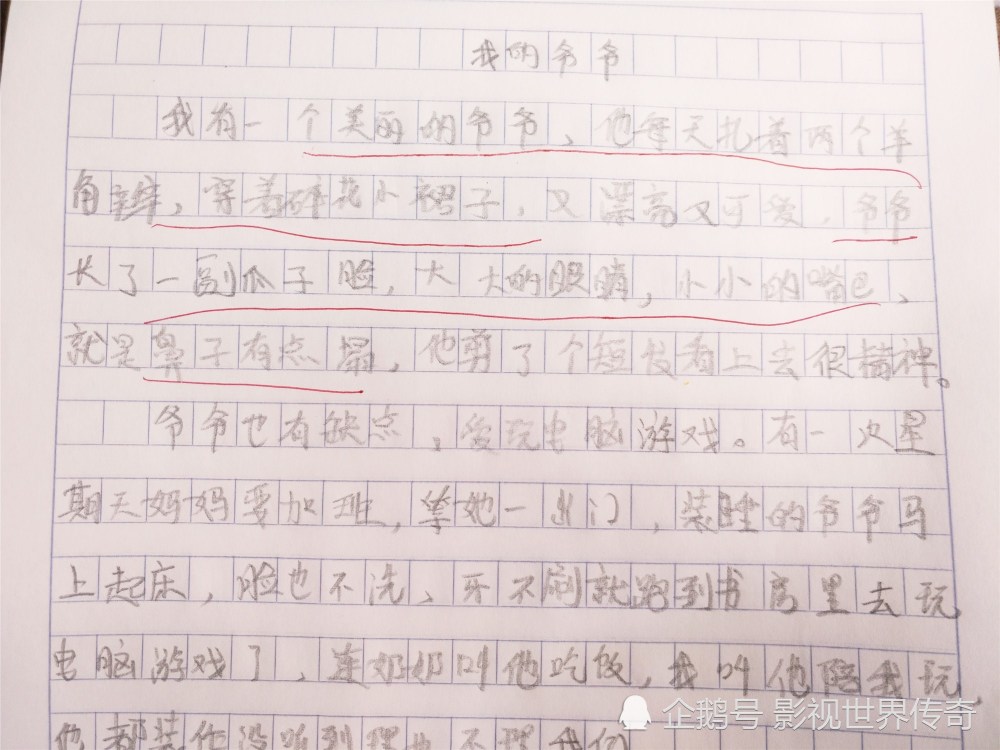 我的爷爷
我有一个美丽的爷爷、他每天扎着两个羊
角辫，穿着碎花小裙子，又漂亮又可爱，爷爷
长了一副瓜子脸，大大的眼睛，小小的嘴巴、
就是鼻子有点塌，他剪了个短发看上去很精神。
爷爷也有缺点，爱玩电脑游戏。有一次星
期天妈妈要加班，等她一出门，装睡的爷爷马
上起床，脸也不洗、牙不刷就跑到书房里去玩
电脑游戏了、连奶奶叫他吃饭，我叫他陪我玩
他都装作没听到理也不理我们
企鹅号 影视世界传奇